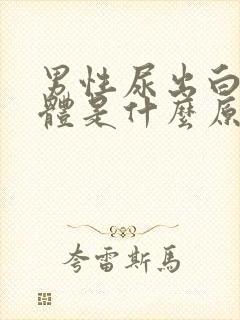 男性尿出白
體是什麼原
夸雷斯馬